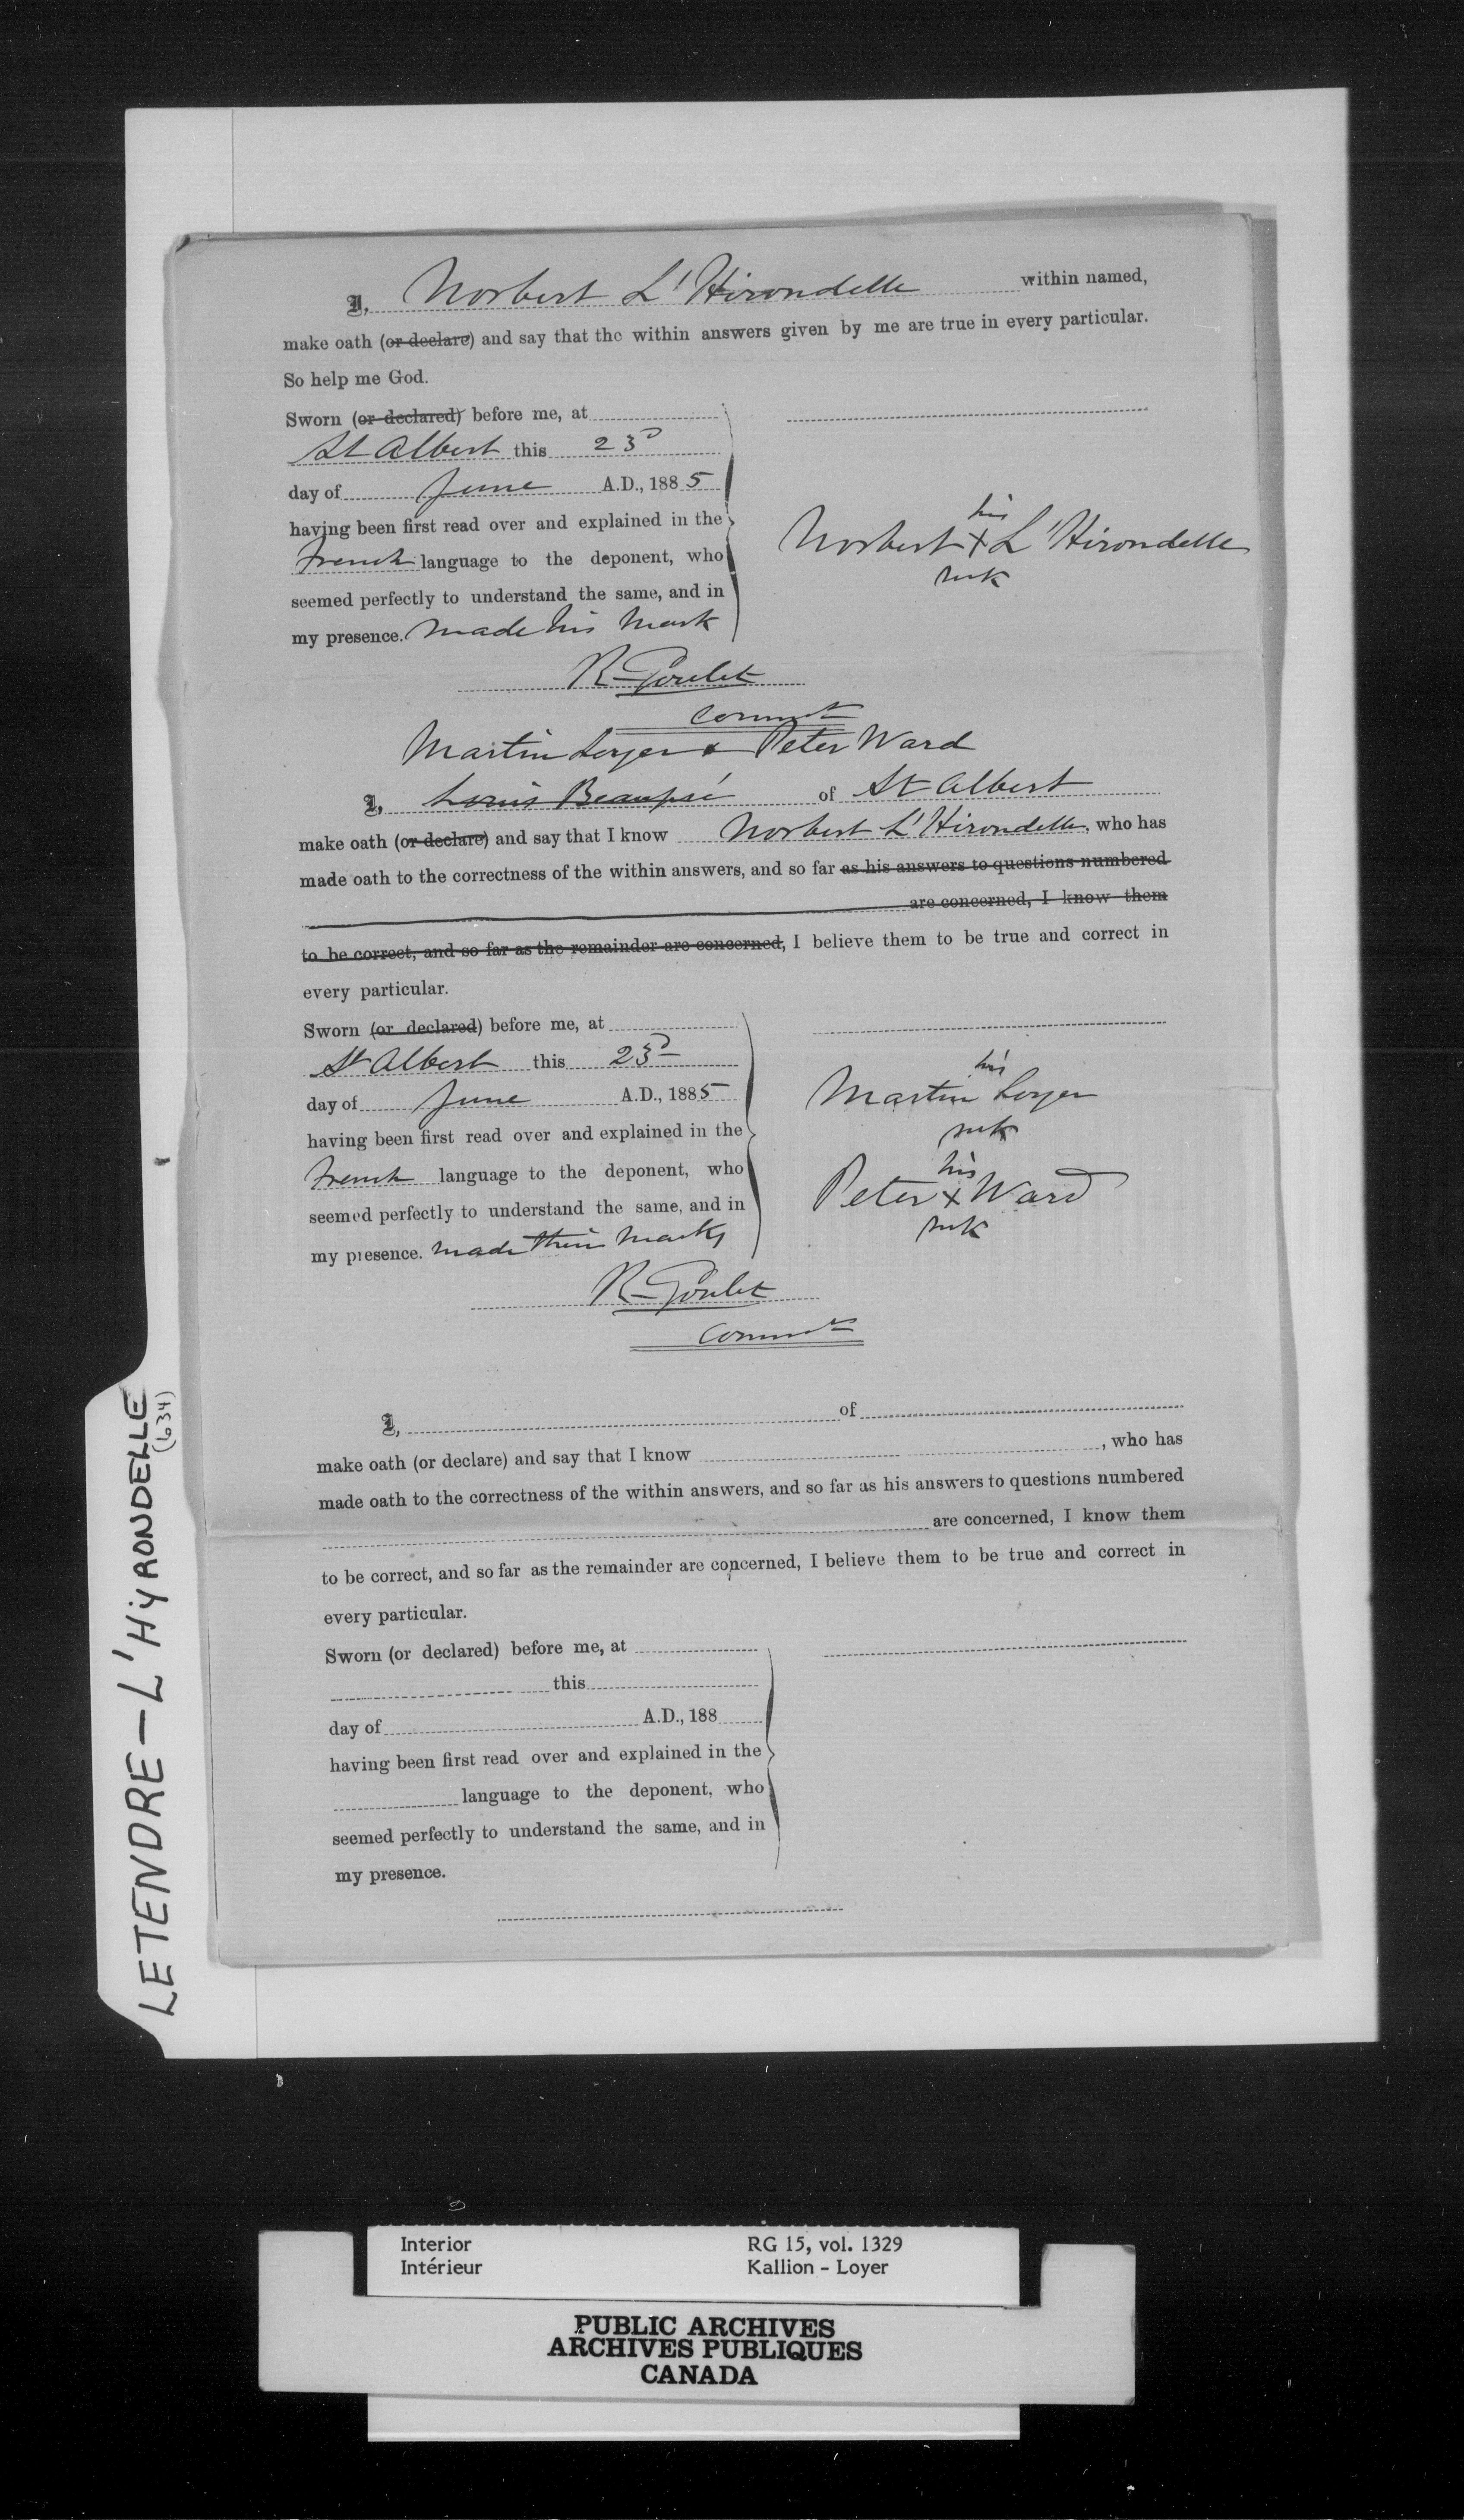 I, Norbert L'Hirondelle within named,
make oath (or declare) and say that the within answers given by me are true in every particular.
So help me God.
Sworn (or declared) before me, at
St Albert this 23D
day of June A.D., 1885
having been first read over and explained in the
French language to the deponent, who
seemed perfectly to understand the same, and in
my presence. made his mark
his
Norbert X L'Hirondelle
mrk
R Goulet
Martin Loyer & Peter Ward
I, Louis Beaupré of St Albert
make oath (or declare) and say that I know Norbert L'Hirondelle, who has
made oath to the correctness of the within answers, and so far as his answers to questions numbered
are concerned, I know them
to be correct, and so far as the remainder are concerned, I believe them to be true and correct in
every particular.
Sworn (or declared) before me, at
St Albert this 23D
day of June A.D., 1885
having been first read over and explained in the
French language to the deponent, who
seemed perfectly to understand the same, and in
my presence. made their marks
his
Martin Loyer
mrk
his
Peter X Ward
mrk
R Goulet
I, of
make oath (or declare) and say that I know , who has
made oath to the correctness of the within answers, and so far as his answers to questions numbered
are concerned, I know them
to be correct, and so far as the remainder are concerned, I believe them to be true and correct in
every particular.
Sworn (or declared) before me, at
this
day of A.D., 188
having been first read over and explained in the
language to the deponent, who
seemed perfectly to understand the same, and in
my presence.
LETENDRE – L'HYRONDELLE
(634)
Interior RG 15, vol. 1329
Intérieur Kallion - Loyer
PUBLIC ARCHIVES
ARCHIVES PUBLIQUES
CANADA